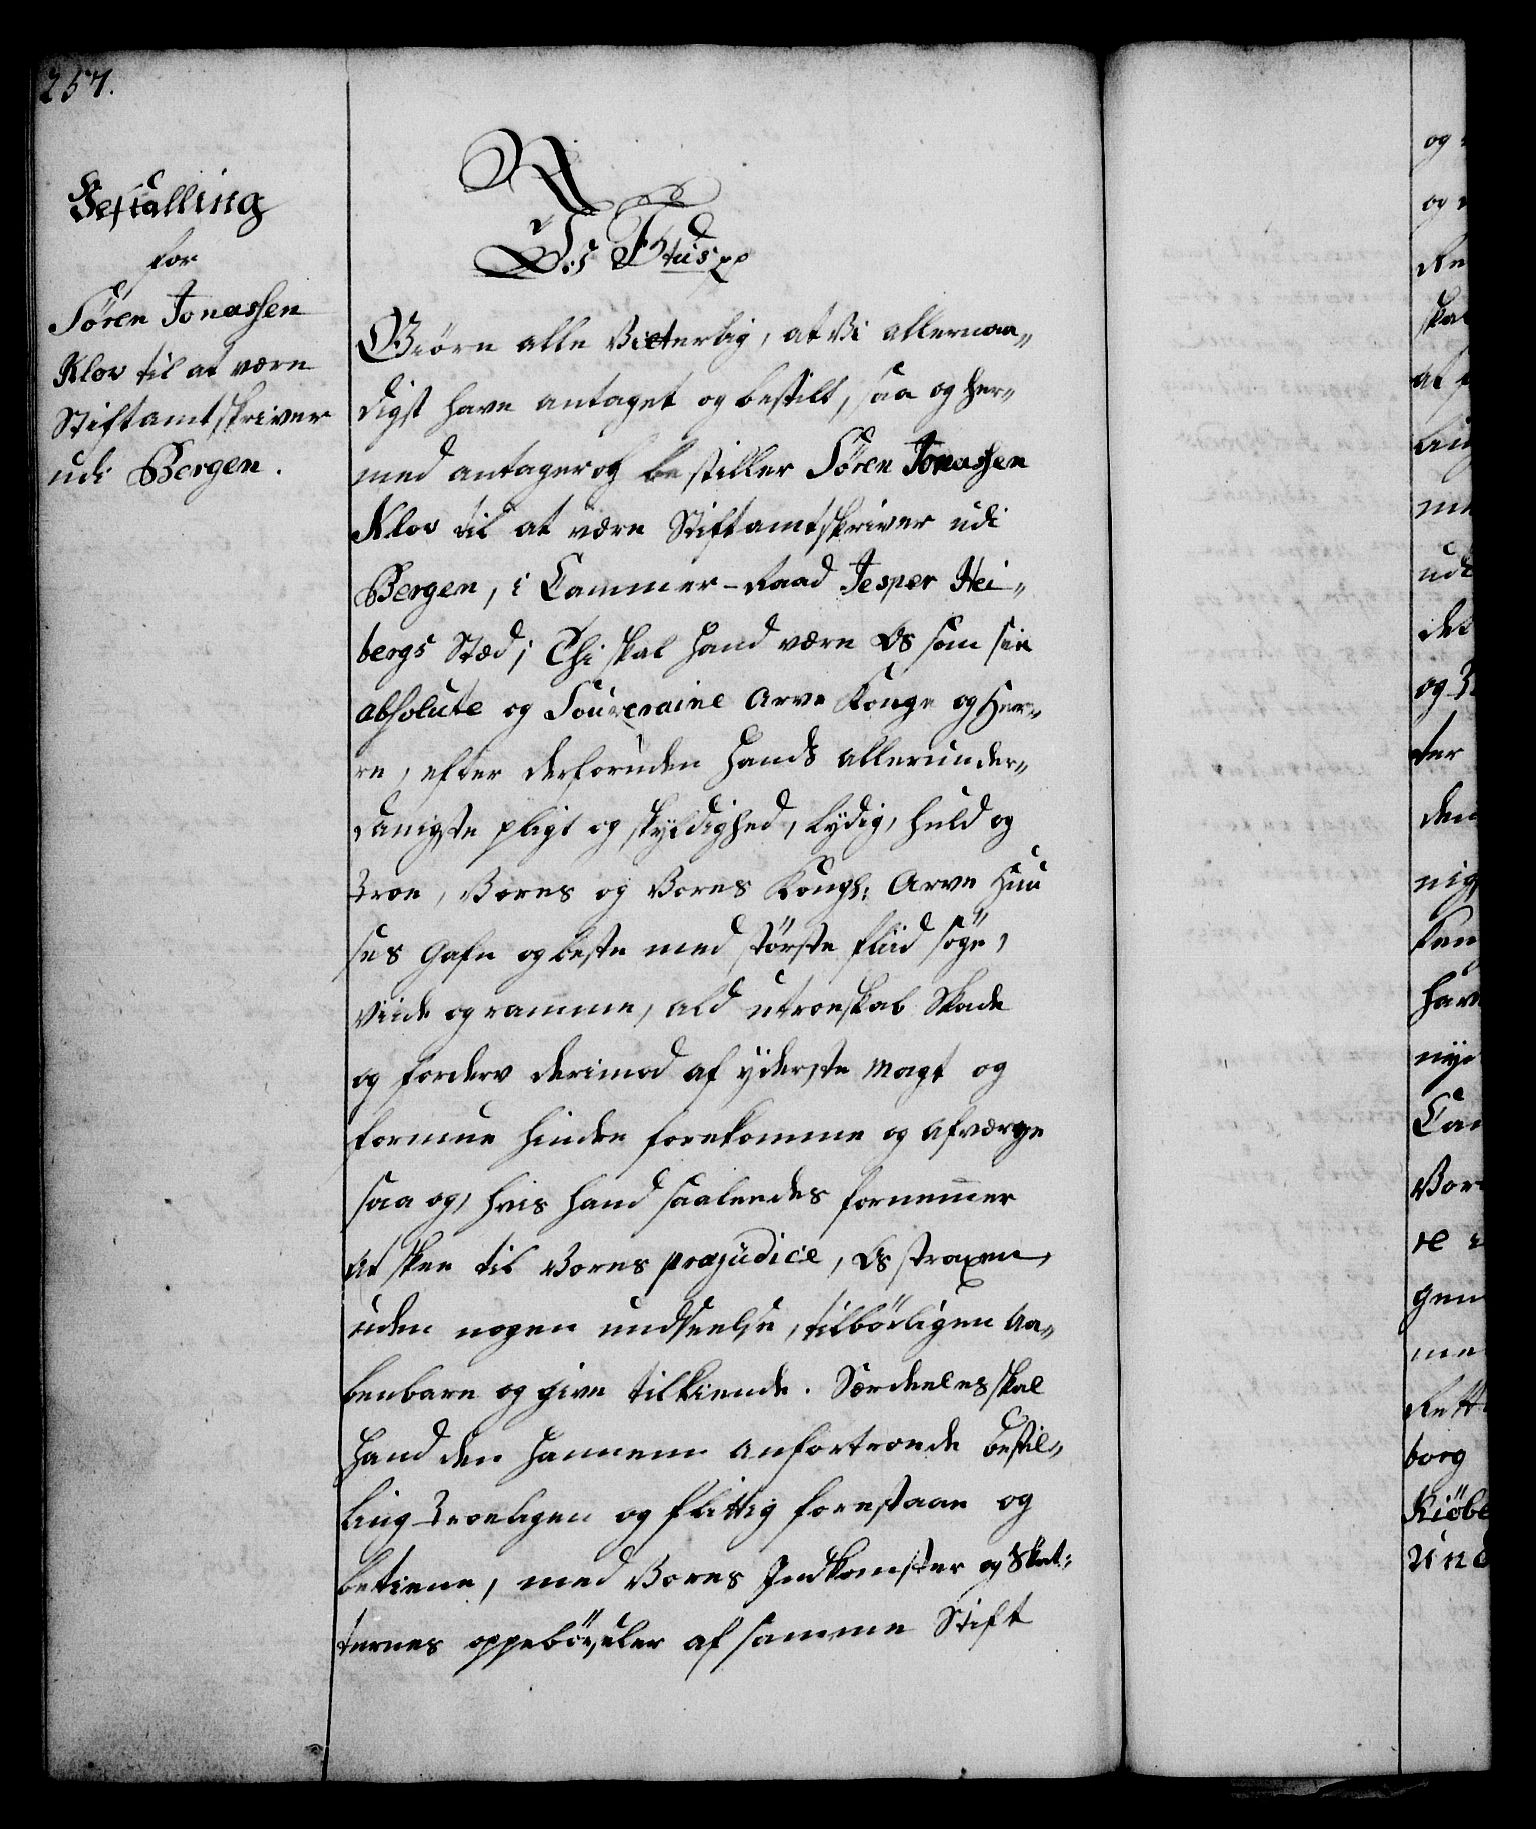 257.
Bestalling
for
Sören Jonassen
Klov til at være
Stiftamtskriver
udi Bergen.
R
Vi Fdus pp
Giöre alle Vitterlig, at Vi allernaa„
digst have antaget og bestilt, saa og her„
med antager og bestiller Sören Jonassen
Klov til at være Stiftamtskriver udi
Bergen, i Cammer-Raad Jesper Hei„
bergs Stæd; Thi skal hand være Os som sin
absolute og Souveraine Arve Konge og Her„
re, efter derforuden hands allerunder„
danigste pligt og skyldighed, lydig, huld og
Troe, Vores og Vores Kongl: Arve Huu
ses Gafn og beste med störste fliid söge,
viide og ramme, ald utroeskab Skade
og forderv derimod af yderste magt og
formue hindre forekomme og afværge
saa og, hvis hand saaleedes fornemmer
at skee til Vores præjudice, Os straxen,
uden nogen undseelse, tilbörligen aa„
benbare og give tilkiende. Særdeeles skal
hand den hannem anfortroede bestil„
ling Troeligen og flittig forestaae og
betiene, med Vores Indkomster og Skat:
ternes oppebörseler af samme Stift
og
og
Re
skal
at
ling
me
udi
det
og
ter
den
nig
kan
have
nye
Cam
Vor
re
gen
me
Rett
borg
Kiöbe
Und